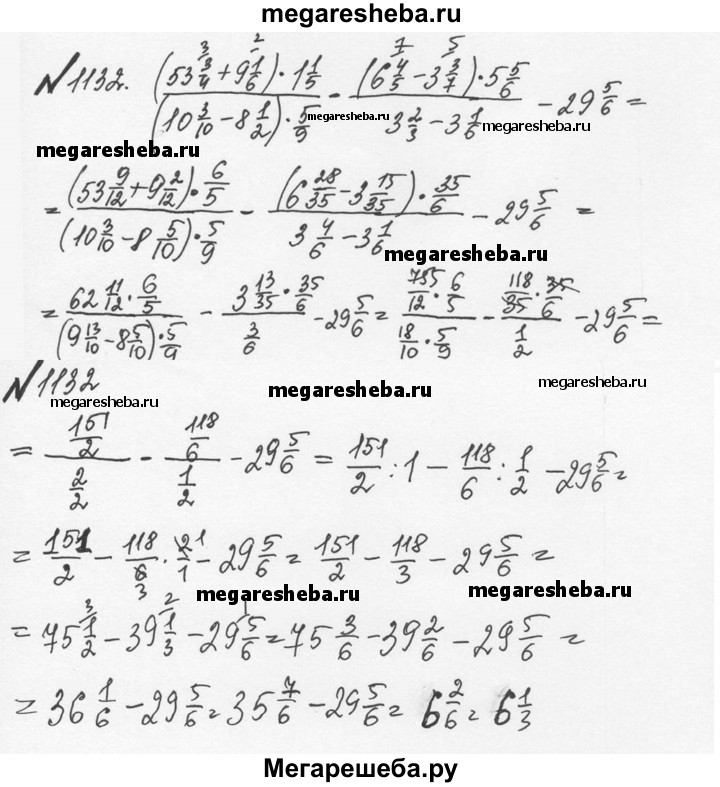 megaresheba.ru
№1132. ((53 3/4 + 9 1/6) · 1 1/5) / ((10 3/10 − 8 1/2) · 5/9) − ((6 4/5 − 3 3/7) · 5 5/6) / (3 2/3 − 3 1/6) − 29 5/6 =
megaresheba.ru megaresheba.ru
megaresheba.ru
= ((53 9/12 + 9 2/12) · 6/5) / ((10 3/10 − 8 5/10) · 5/9) − ((6 28/35 − 3 15/35) · 35/6) / (3 4/6 − 3 1/6) − 29 5/6 =
megaresheba.ru
= (62 11/12 · 6/5) / ((9 13/10 − 8 5/10) · 5/9) − (3 13/35 · 35/6) / (3/6) − 29 5/6 = (755/12 · 6/5) / (18/10 · 5/9) − (118/35 · 35/6) / (1/2) − 29 5/6 =
№1132
megaresheba.ru megaresheba.ru megaresheba.ru
= (151/2) / (2/2) − (118/6) / (1/2) − 29 5/6 = 151/2 : 1 − 118/6 : 1/2 − 29 5/6 =
= 151/2 − 118/6 · 2/1 − 29 5/6 = 151/2 − 118/3 − 29 5/6 =
megaresheba.ru megaresheba.ru
= 75 1/2 − 39 1/3 − 29 5/6 = 75 3/6 − 39 2/6 − 29 5/6 =
= 36 1/6 − 29 5/6 = 35 7/6 − 29 5/6 = 6 2/6 = 6 1/3
Мегарешеба.ру